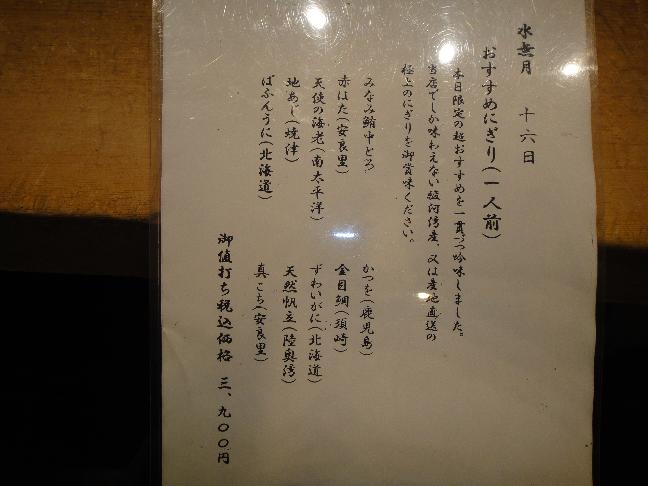 水無月 十六日
おすすめにぎり(一人前)
本日限定の超おすすめを一貫づつ吟味しました。
当店でしか味わえない駿河湾産、又は産地直送の
極上のにぎりを御賞味ください。
みなみ鮪中とろ
赤はた(安良里)
天使の海老(南太平洋)
地あじ(焼津)
ばふんうに(北海道)
かつを(鹿児島)
金目鯛(須崎)
ずわいがに(北海道)
天然帆立(陸奥湾)
真こち(安良里)
御値打ち税込価格 三、九〇〇円